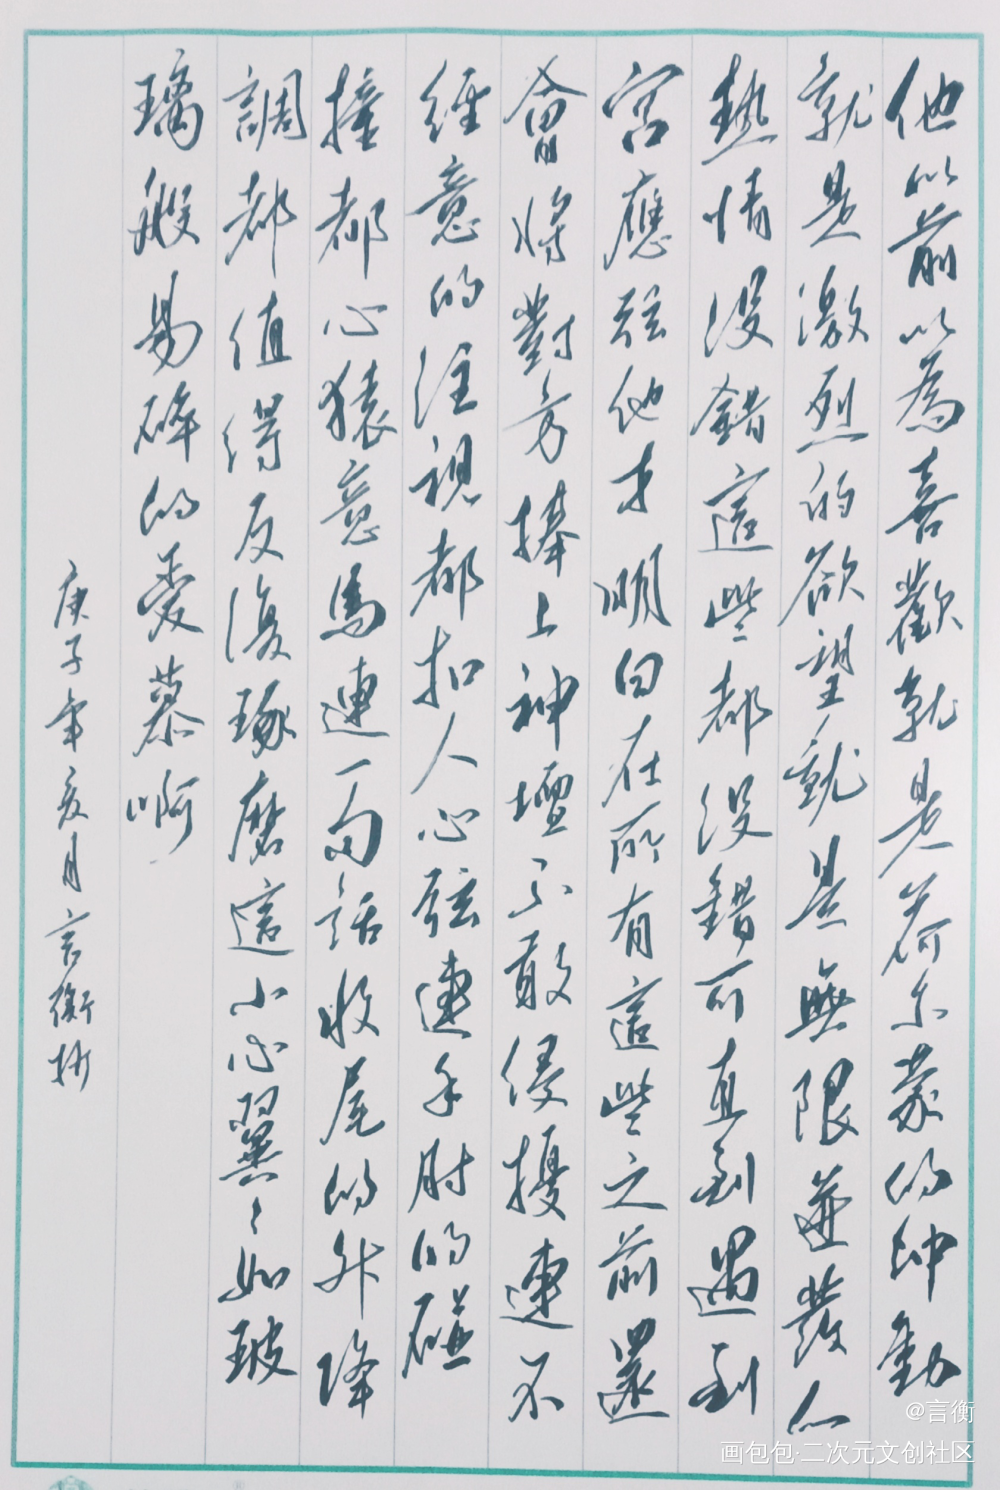 他以前以為喜歡就是荷尔蒙的沖動
就是激烈的欲望就是無限蓬發的
熱情沒錯這些都沒錯可直到遇到
宫應弦他才明白在所有這些之前還
會將對方捧上神壇不敢侵擾連不
經意的注視都扣人心弦連手肘的碰
撞都心猿意馬連一句話收尾的升降
調都值得反復琢磨這小心翼〻如玻
璃般易碎的愛慕啊
庚子年亥月言衡抄
@言衡
画包包·二次元文创社区